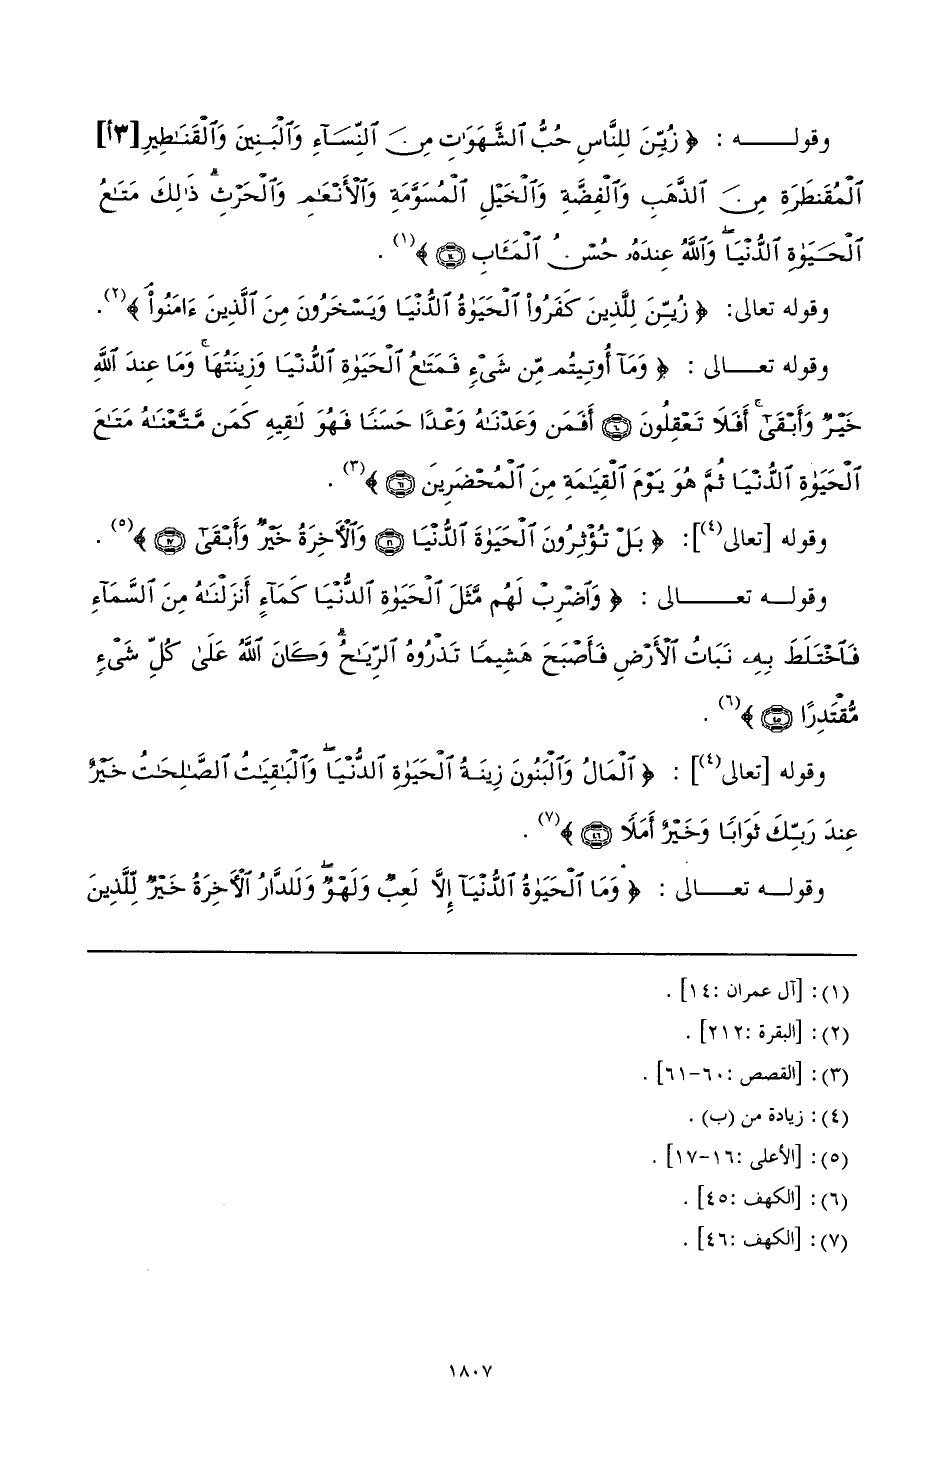 وقولـــــه : ﴿ زُيِّنَ لِلنَّاسِ حُبُّ ٱلشَّهَوَٰتِ مِنَ ٱلنِّسَآءِ وَٱلْبَنِينَ وَٱلْقَنَٰطِيرِ [٣أ]
ٱلْمُقَنطَرَةِ مِنَ ٱلذَّهَبِ وَٱلْفِضَّةِ وَٱلْخَيْلِ ٱلْمُسَوَّمَةِ وَٱلْأَنْعَٰمِ وَٱلْحَرْثِ ۗ ذَٰلِكَ مَتَٰعُ
ٱلْحَيَوٰةِ ٱلدُّنْيَا ۖ وَٱللَّهُ عِندَهُۥ حُسْنُ ٱلْمَـَٔابِ ﴾(١) .
وقوله تعالى: ﴿ زُيِّنَ لِلَّذِينَ كَفَرُوا۟ ٱلْحَيَوٰةُ ٱلدُّنْيَا وَيَسْخَرُونَ مِنَ ٱلَّذِينَ ءَامَنُوا۟ ﴾(٢).
وقوله تعـــــالى : ﴿ وَمَآ أُوتِيتُم مِّن شَىْءٍ فَمَتَٰعُ ٱلْحَيَوٰةِ ٱلدُّنْيَا وَزِينَتُهَا ۚ وَمَا عِندَ ٱللَّهِ
خَيْرٌ وَأَبْقَىٰٓ ۚ أَفَلَا تَعْقِلُونَ ۝٦٠ أَفَمَن وَعَدْنَٰهُ وَعْدًا حَسَنًا فَهُوَ لَٰقِيهِ كَمَن مَّتَّعْنَٰهُ مَتَٰعَ
ٱلْحَيَوٰةِ ٱلدُّنْيَا ثُمَّ هُوَ يَوْمَ ٱلْقِيَٰمَةِ مِنَ ٱلْمُحْضَرِينَ ۝٦١ ﴾(٣) .
وقوله [تعالى(٤)]: ﴿ بَلْ تُؤْثِرُونَ ٱلْحَيَوٰةَ ٱلدُّنْيَا ۝١٦ وَٱلْأَخِرَةُ خَيْرٌ وَأَبْقَىٰٓ ۝١٧ ﴾(٥) .
وقولـــه تعـــــــالى : ﴿ وَٱضْرِبْ لَهُم مَّثَلَ ٱلْحَيَوٰةِ ٱلدُّنْيَا كَمَآءٍ أَنزَلْنَٰهُ مِنَ ٱلسَّمَآءِ
فَٱخْتَلَطَ بِهِۦ نَبَاتُ ٱلْأَرْضِ فَأَصْبَحَ هَشِيمًا تَذْرُوهُ ٱلرِّيَٰحُ ۗ وَكَانَ ٱللَّهُ عَلَىٰ كُلِّ شَىْءٍ
مُّقْتَدِرًا ۝٤٥ ﴾(٦) .
وقوله [تعالى(٤)] : ﴿ ٱلْمَالُ وَٱلْبَنُونَ زِينَةُ ٱلْحَيَوٰةِ ٱلدُّنْيَا ۖ وَٱلْبَٰقِيَٰتُ ٱلصَّٰلِحَٰتُ خَيْرٌ
عِندَ رَبِّكَ ثَوَابًا وَخَيْرٌ أَمَلًا ۝٤٦ ﴾(٧) .
وقولـــه تعـــــالى : ﴿ وَمَا ٱلْحَيَوٰةُ ٱلدُّنْيَآ إِلَّا لَعِبٌ وَلَهْوٌ ۖ وَلَلدَّارُ ٱلْأَخِرَةُ خَيْرٌ لِّلَّذِينَ
(١): [آل عمران :١٤] .
(٢): [البقرة :٢١٢] .
(٣): [القصص :٦٠-٦١] .
(٤): زيادة من (ب) .
(٥): [الأعلى :١٦-١٧] .
(٦): [الكهف :٤٥] .
(٧): [الكهف :٤٦] .
١٨٠٧